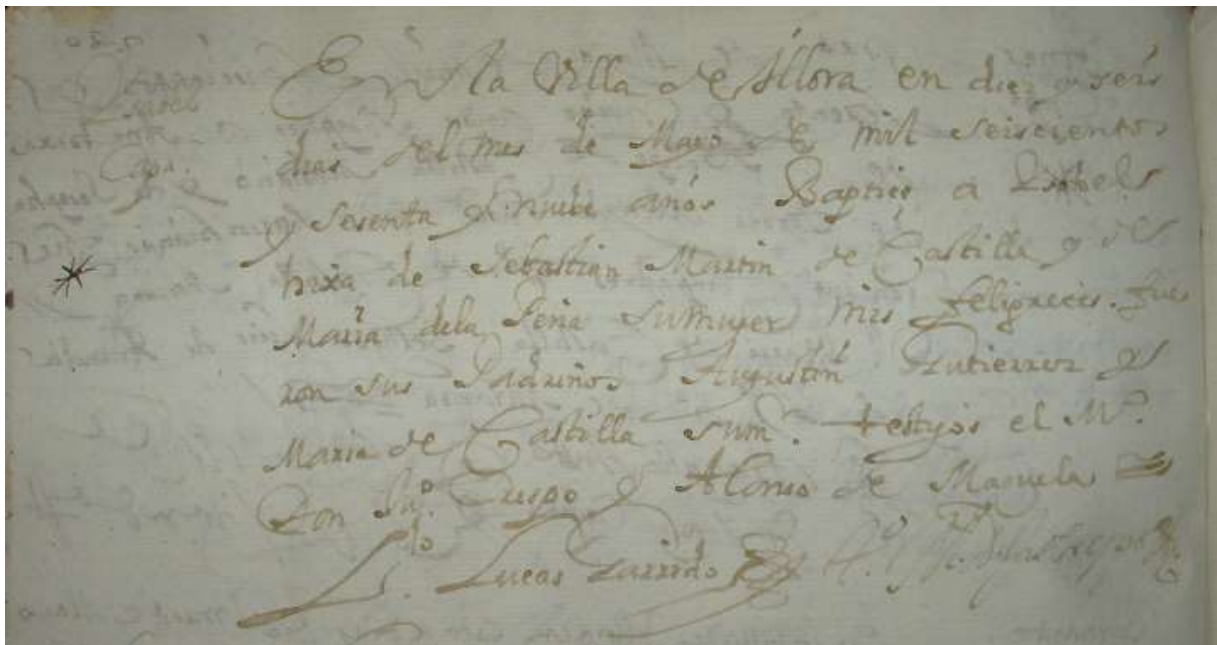 Ysabel
Capu.
En la Villa de Yllora en diez y seis
dias del mes de Mayo de mil seiscientos
y sesenta y nuebe años Baptice a Ysabel
hixa de Sebastian Martin de Castilla y de
Maria dela Peña su mujer mis feligreces. fue
ron sus Padrinos Augustin Gutierrez y
Maria de Castilla sum^r. testigos el M^o.
Don Ju^o. Crespo y Alonso de Maruela
L^do Lucas Garrido